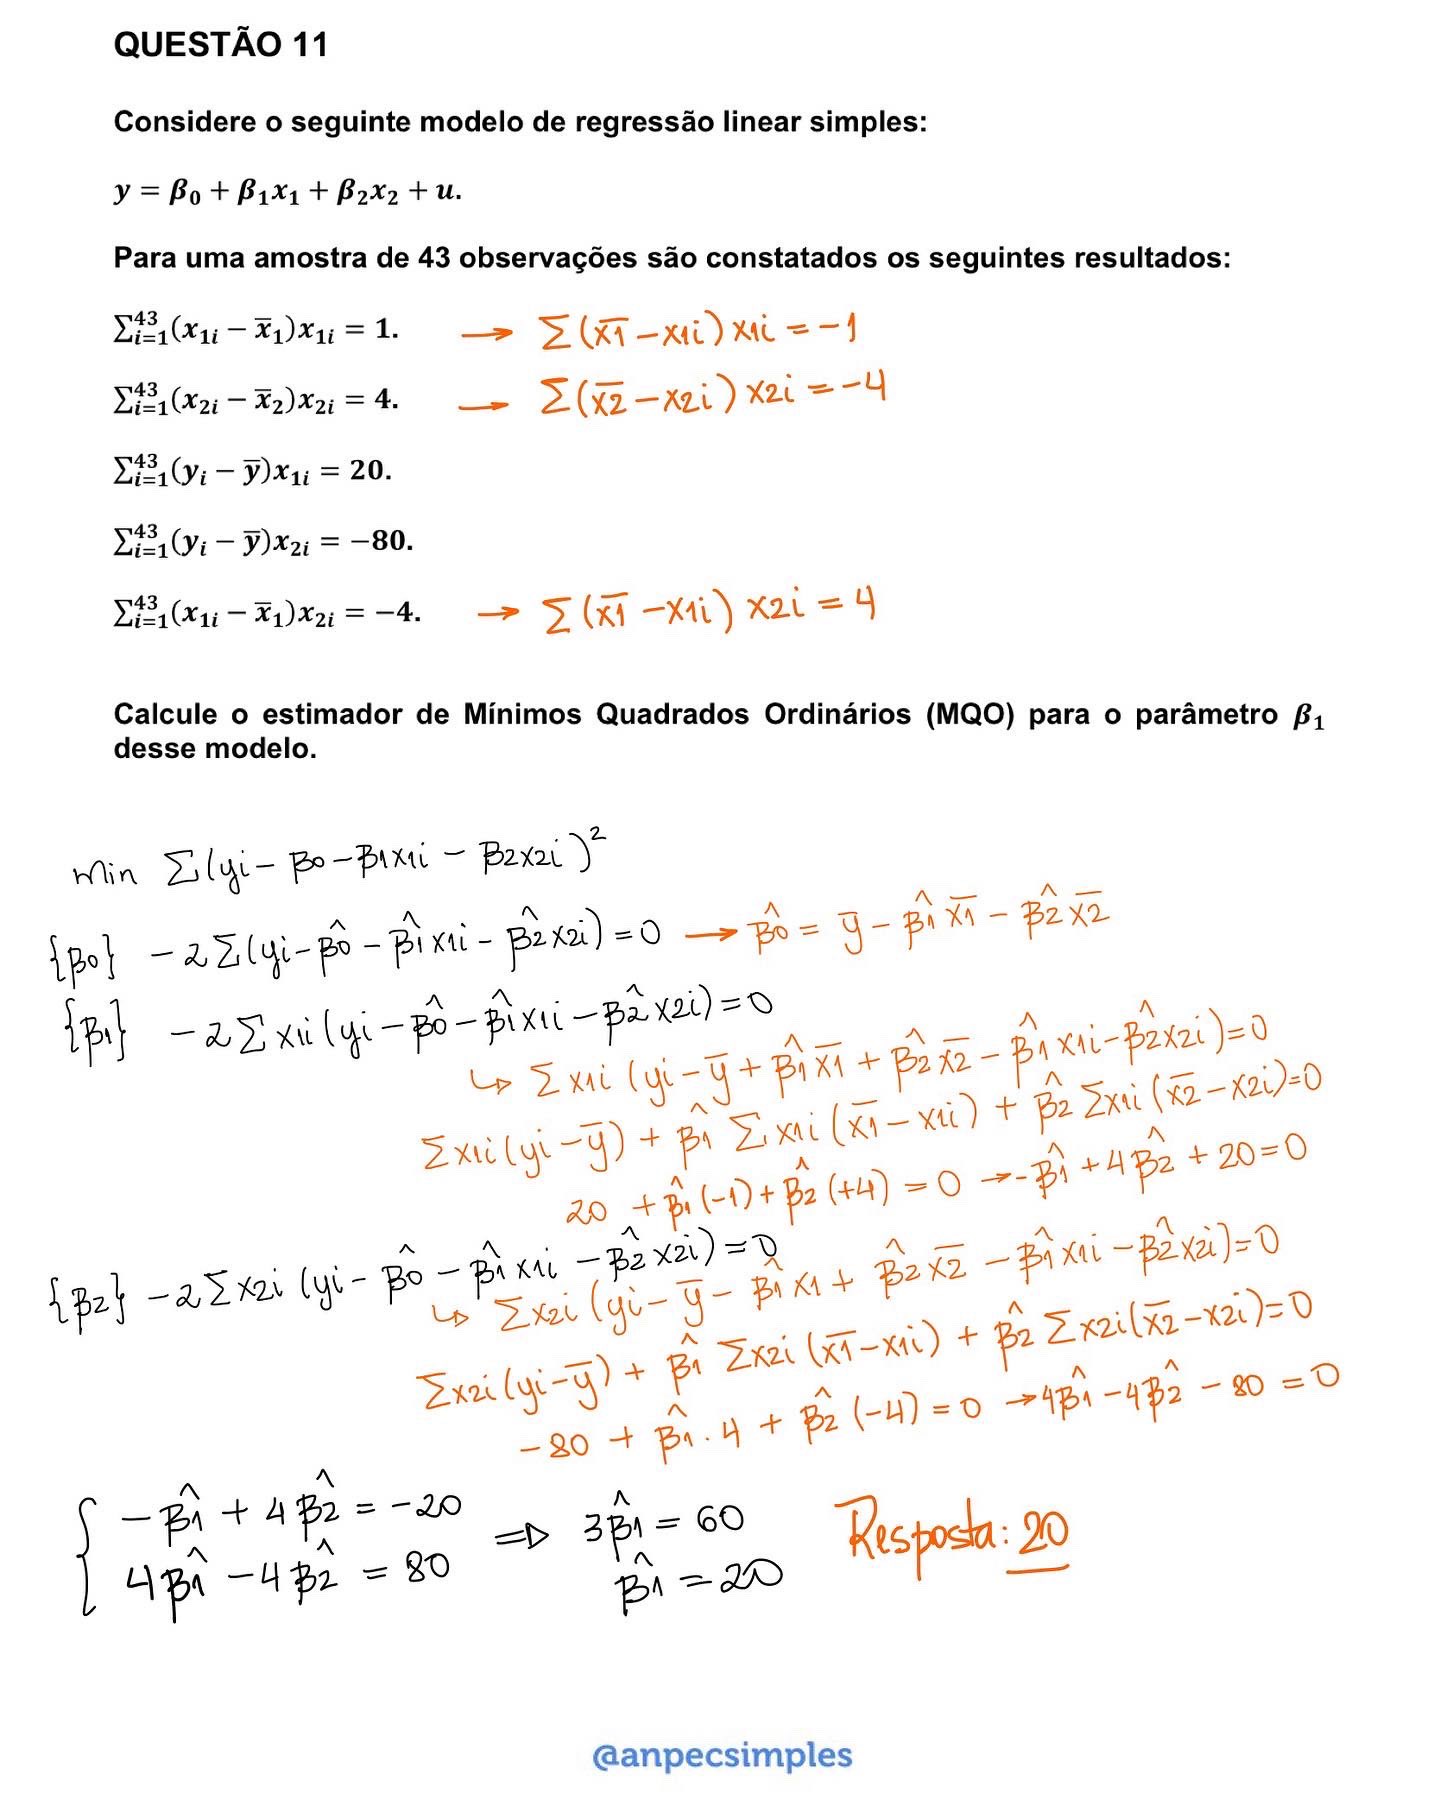 QUESTÃO 11
Considere o seguinte modelo de regressão linear simples:
y = β₀ + β₁x₁ + β₂x₂ + u.
Para uma amostra de 43 observações são constatados os seguintes resultados:
∑⁴³ᵢ₌₁(x₁ᵢ − x̅₁)x₁ᵢ = 1. → Σ(x̅1 − x1i) x1i = −1
∑⁴³ᵢ₌₁(x₂ᵢ − x̅₂)x₂ᵢ = 4. → Σ(x̅2 − x2i) x2i = −4
∑⁴³ᵢ₌₁(yᵢ − y̅)x₁ᵢ = 20.
∑⁴³ᵢ₌₁(yᵢ − y̅)x₂ᵢ = −80.
∑⁴³ᵢ₌₁(x₁ᵢ − x̅₁)x₂ᵢ = −4. → Σ(x̅1 − x1i) x2i = 4
Calcule o estimador de Mínimos Quadrados Ordinários (MQO) para o parâmetro β₁
desse modelo.
Min Σ(yi − β0 − β1x1i − β2x2i)²
{β0} −2Σ(yi − β̂0 − β̂1x1i − β̂2x2i) = 0 → β̂0 = y̅ − β̂1x̅1 − β̂2x̅2
{β1} −2Σx1i(yi − β̂0 − β̂1x1i − β̂2x2i) = 0
↳ Σx1i(yi − y̅ + β̂1x̅1 + β̂2x̅2 − β̂1x1i − β̂2x2i) = 0
Σx1i(yi − y̅) + β̂1 Σx1i(x̅1 − x1i) + β̂2 Σx1i(x̅2 − x2i) = 0
20 + β̂1(−1) + β̂2(+4) = 0 → −β̂1 + 4β̂2 + 20 = 0
{β2} −2Σx2i(yi − β̂0 − β̂1x1i − β̂2x2i) = 0
↳ Σx2i(yi − y̅ − β̂1x1 + β̂2x̅2 − β̂1x1i − β̂2x2i) = 0
Σx2i(yi − y̅) + β̂1 Σx2i(x̅1 − x1i) + β̂2 Σx2i(x̅2 − x2i) = 0
−80 + β̂1.4 + β̂2(−4) = 0 → 4β̂1 − 4β̂2 − 80 = 0
{ −β̂1 + 4β̂2 = −20 ⇒ 3β̂1 = 60 Resposta: 20
4β̂1 − 4β̂2 = 80 β̂1 = 20
@anpecsimples